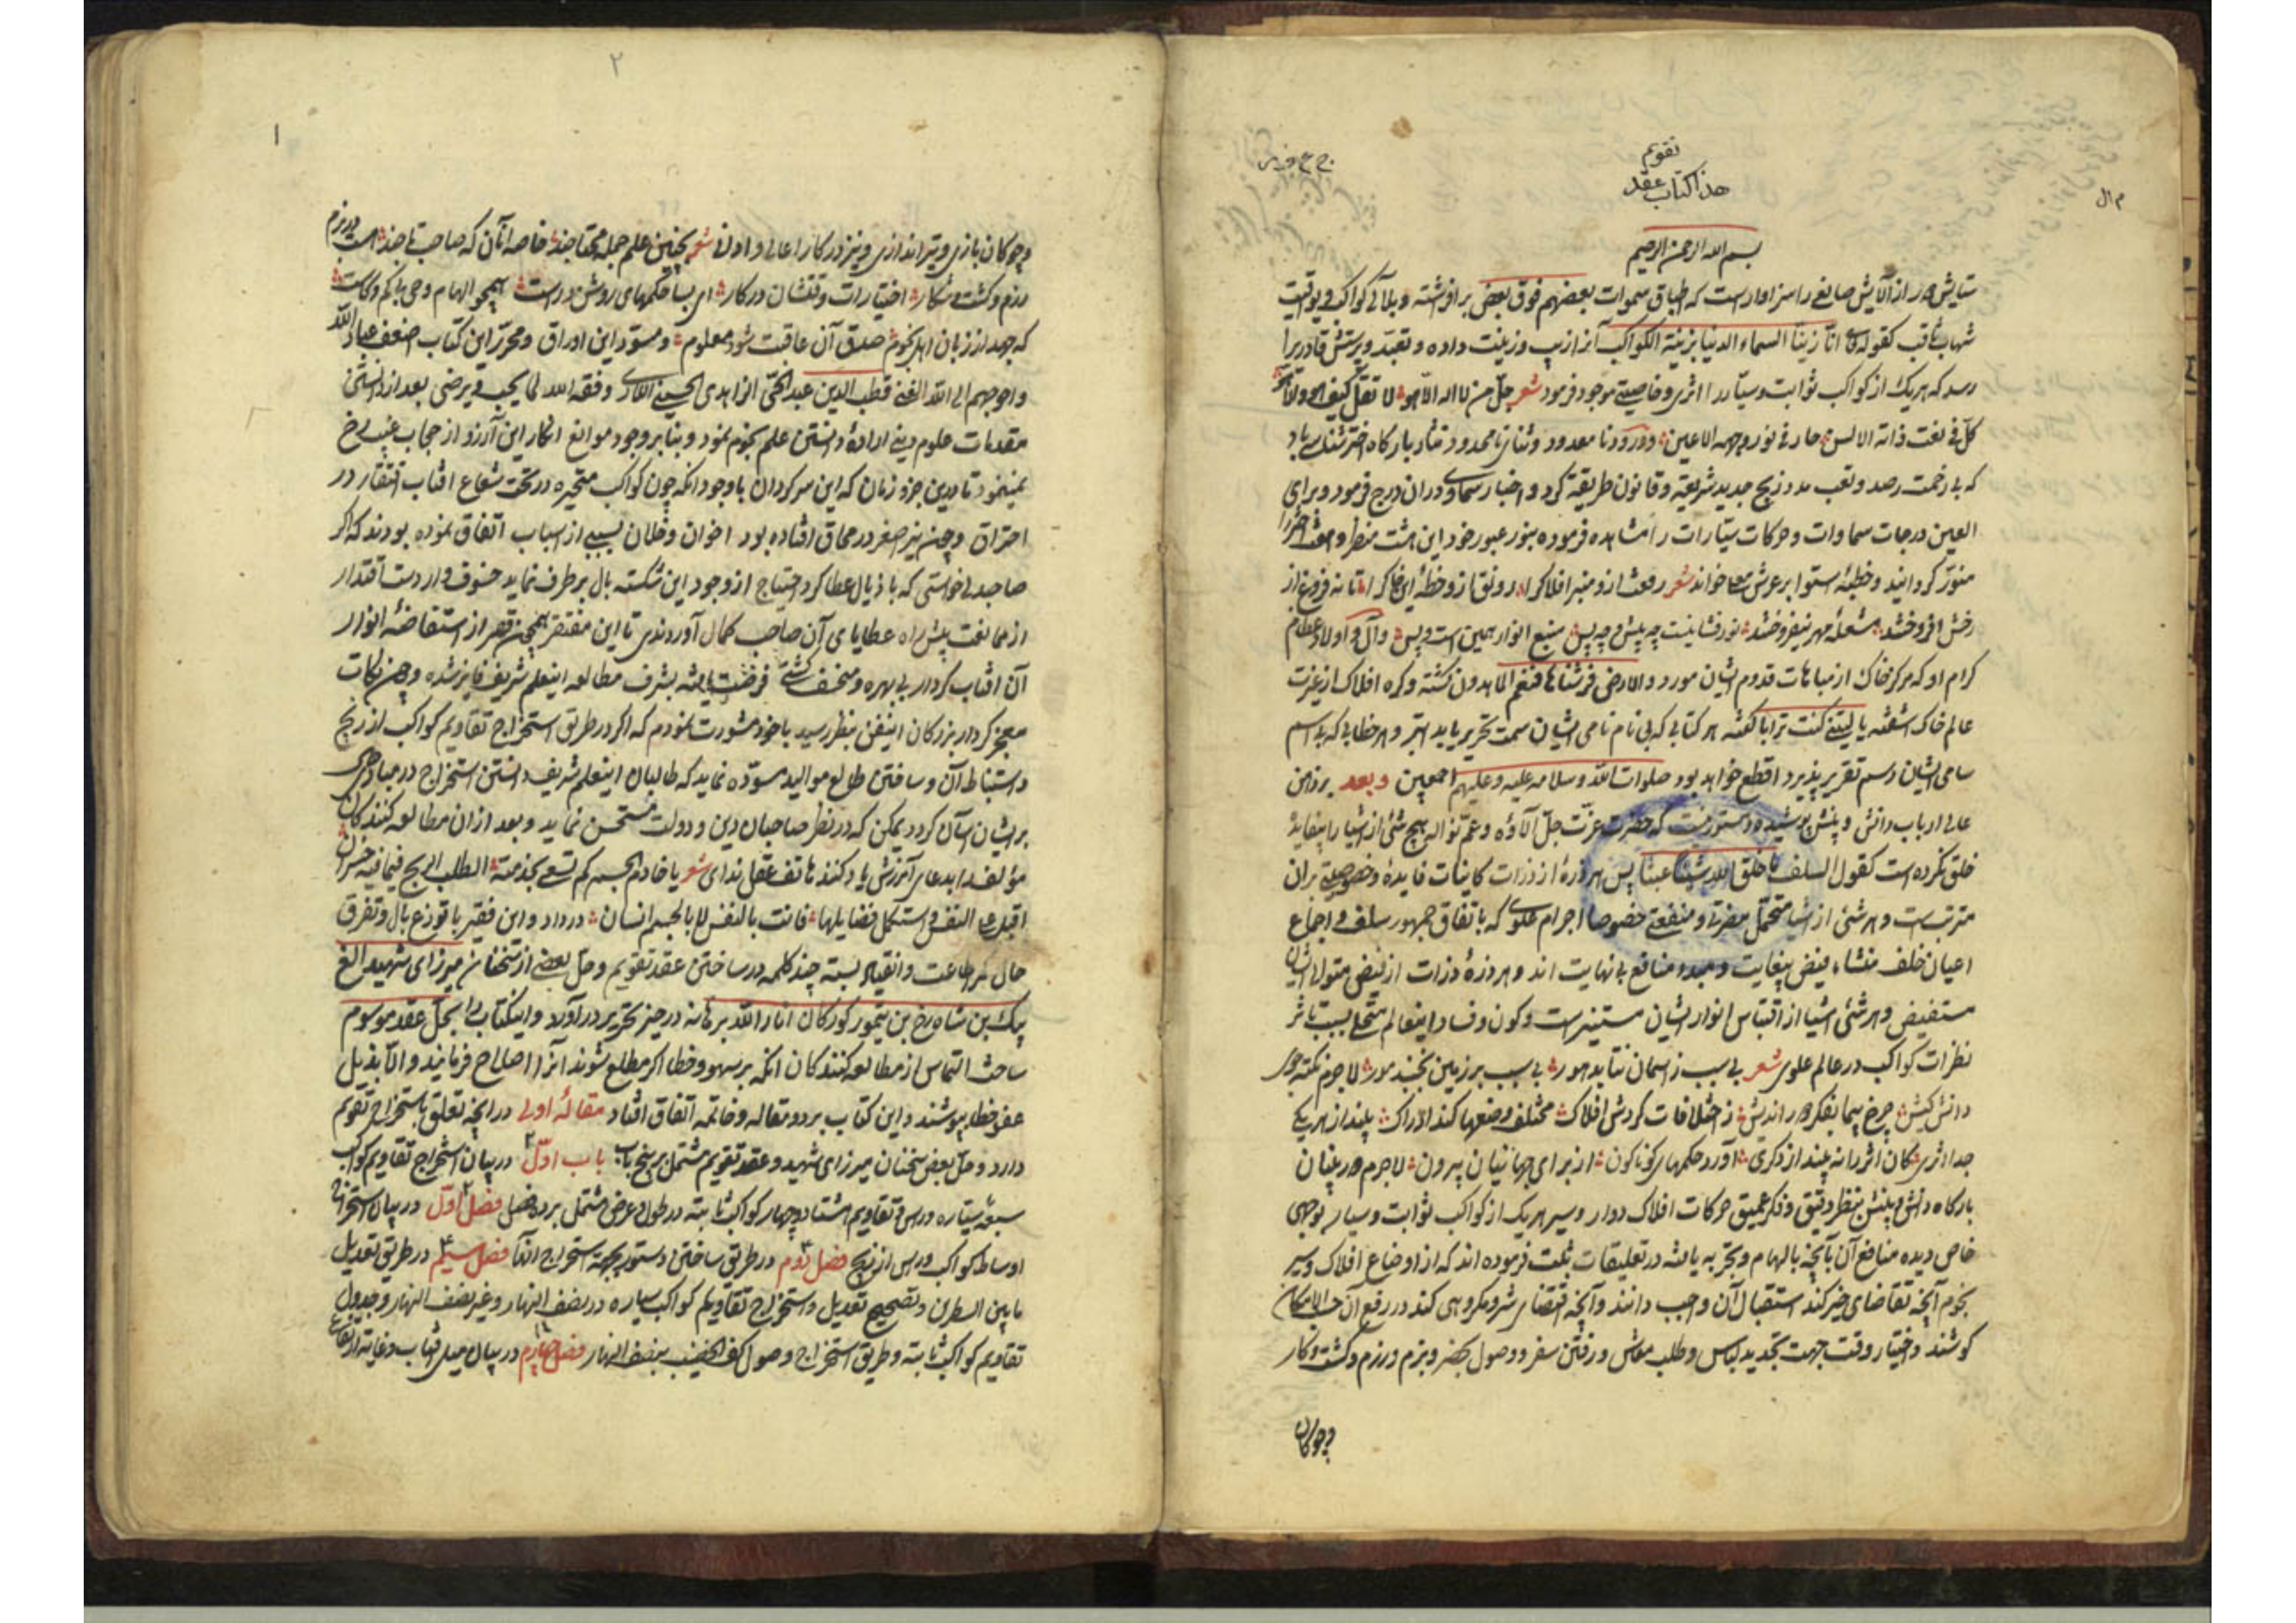 تقویم
هذا کتاب عقد
بسم الله الرحمن الرحیم
ستایش مر از آلایش صانعی را سزاوار است که اطباق سموات بعضهم فوق بعض برافراشته و بلآلی کواکب و یواقیت
شهاب ثاقب کقوله تع انّا زینّا السماء الدنیا بزینة الکواکب آنرا زیب و زینت داده و تعبّد و پرستش قادریرا
رسد که هر یک از کواکب ثوابت و سیّار را اثری و خاصیتی موجود فرمود شعر جلّ من لا اله الّا هو لا تقل کیف هو ولا
کلّ فی نعت ذاته الالسن حار فی نور وجهه الاعین و درود نا معدود و ثنای نا محدود نثار بارگاه
که بی زحمت رصد و تعب مدد زیج جدید شریعة و قانون طریقة کرد و اخبار سماوی در آن درج فرمود و برای
العین درجات سماوات و حرکات سیّارات را مشاهده فرموده بنور عبور خود این هشت منظر و
منوّر گردانید و خطبهٔ استوا بر عرش معلا خواند شعر رفعت ازو منبر افلاک را رونق ازو خطّهٔ این خاک را تا نه فروغ از
رخش افروختند مشعلهٔ مهر نیفروختند نور فشانیست چه پیش و چه پس منبع انوار همین است و بس و آل و اولاد عظام
کرام او که مرکز خاک از مباهات قدوم ایشان مورد و الارض فرشناها فنعم الماهدون گشته و کره افلاک از غیرت
عالم خاک آشفته یا لیتنی کنت ترابا گفته هر کتابی که بی نام نامی ایشان سمت تحریر یابد ابتر و هر خطابی که بی اسم
سامی ایشان رسم تقریر پذیرد اقطع خواهد بود صلوات الله و سلامه علیه و علیهم اجمعین و بعد بر ذهن
عالی ارباب دانش و بینش پوشیده و مستور نیست که حضرت عزّت جلّ آلاؤه و عمّ نواله هیچ شئی از اشیا را بیفایدهٔ
خلق نکرده است کقول السلف ما خلق الله شیئا عبثا پس هر ذرهٔ از ذرات کاینات فایدهٔ و خصوصیتی بران
مترتبست و هر شئی از اشیا متحمل مضرتی و منفعتی خصوصا اجرام علوی که باتفاق جمهور سلف و اجماع
اعیان خلف منشاء فیض بیغایت و مبدء منافع بی نهایت اند و هر ذرهٔ ذرات از فیض متوالی ایشان
مستفیض و هر شئی اشیا از اقتباس انوار ایشان مستنیرست و کون و فساد اینعالم سفلی بسبب تاثر
نظرات کواکب در عالم علوی شعر بی سبب ز آسمان نتابد هور بی سبب بر زمین نجنبد مور لاجرم نکته جوی
دانش کیش چرخ پیما بفکر دور اندیش ز اختلافات گردش افلاک مختلف وضعها کند ادراک بیند از هر یکی
جدا اثری کان اثر را نه بیند از دگری آورد حکمهای گوناگون از برای جهانیان بیرون لاجرم دوربینان
بارگاه دانش و بینش بنظر دقیق و فکر عمیق حرکات افلاک دوار و سیر هر یک از کواکب ثوابت و سیار بوجهی
خاص دیده منافع آن بآنچه بالهام و تجربه یافته در تعلیقات ثبت فرموده اند که از اوضاع افلاک و سیر
نجوم آنچه تقاضای خیر کند استقبال آن واجب دانند و آنچه اقتضای شر و مکروهی کند در رفع آن حسب الامکان
کوشند و اختیار وقت جهت تجدید لباس و طلب معاش و رفتن سفر و وصول بحضر و بزم و رزم و گشت و کار
و چوکان
۲
۱
و چوکان بازی و تیر اندازی و نیز در کار اعالی و ادانی شعر بچنین علم جمله محتاجند خاصه آنان که صاحب تاجند هست در بزم
و رزم و گشت و شکار اختیارات وقتشان در کار ای بسا حکمهای روشن و راست همچو الهام و وحی بی کم و کاست
که جهد از زبان اهل نجوم صدق آن عاقبت شود معلوم و مسوّد این اوراق و محرّر این کتاب اضعف عباد الله
و احوجهم الی الله الغنی قطب الدین عبد الحیّ الزاهدی الحسینی اللاری وفقه الله لما یحب و یرضی بعد از دانستن
مقدمات علوم دینی ارادهٔ دانستن علم نجوم نمود و بنابر وجود موانع انکار این آرزو از حجاب غیب رخ
نمینمود تا درین جزو زمان که این سرگردان با وجود آنکه چون کواکب متحیره در تحت شعاع افتاب افتقار در
احتراق و چون نیّر اصغر در محاق افتاده بود اخوان و خلان بسببی از اسباب اتفاق نموده بودند که اگر
صاحبدلی خواستی که باذیال عطا گرد احتیاج از وجود این شکسته بال برطرف نماید خسوف وار دست اقتدار
از ممانعت پیش راه عطایای آن صاحب کمال آوردندی تا این مفتقر همچون قمر از استفاضهٔ انوار
آن افتاب کردار بی بهره و منخسف گشتی فرصت یافته بشرف مطالعه اینعلم شریف فایز شده و چون نکات
معجز کردار بزرگان اینفن بنظر رسید با خود مشورت نمودم که اگر در طریق استخراج تقاویم کواکب از زیج
و استنباط آن و ساختن طالع موالید مسوّده نماید که طالبان اینعلم شریف دانستن استخراج در مبادی
بر ایشان آسان گردد یمکن که در نظر صاحبان دین و دولت مستحسن نماید و بعد از ان مطالعه کنندگان
مؤلف را بدعای آمرزش یاد کنند هاتف عقل ندای شعر یا خادم الجسم کم تسعی بخدمته اتطلب الربح فیما فیه خسران
اقبل علی النفس و استکمل فضایلها فانت بالنفس لا بالجسم انسان در داد و این فقیر با توزع بال و تفرق
حال کمر اطاعت و انقیاد بسته چند کلمه در ساختن عقد تقویم و حل بعضی از سخنان میرزای شهید الغ
بیک بن شاهرخ بن تیمور کورکان انار الله برهانه در حیز تحریر در آورد و اینکتاب را بحل عقد موسوم
ساخت التماس از مطالعه کنندگان آنکه بر سهو و خطا اگر مطلع شوند آنرا اصلاح فرمایند و الّا بذیل
عفو خطا بپوشند و این کتاب بر دو مقاله و خاتمه اتفاق افتاد مقالهٔ اولی در آنچه تعلق باستخراج تقویم
دارد و حل بعض سخنان میرزای شهید و عقد تقویم مشتمل بر پنج باب باب اوّل در بیان استخراج تقاویم کواکب
سبعهٔ سیّاره و رأس و تقاویم هشتاد و چهار کواکب ثابته در طول و عرض مشتمل بر ده فصل فصل اوّل در بیان استخراج
اوساط کواکب و رأس از زیج فصل دوم در طریق ساختن دستور بجهة استخراج آنها فصل سیم در طریق تعدیل
ما بین السطرین و تصحیح تعدیل و استخراج تقاویم کواکب سیاره در نصف النهار و غیر نصف النهار و جدول
تقاویم کواکب ثابته و طریق استخراج وصول کف الخضیب بنصف النهار فصل چهارم در بیان میل افتاب و غایة ارتفاع